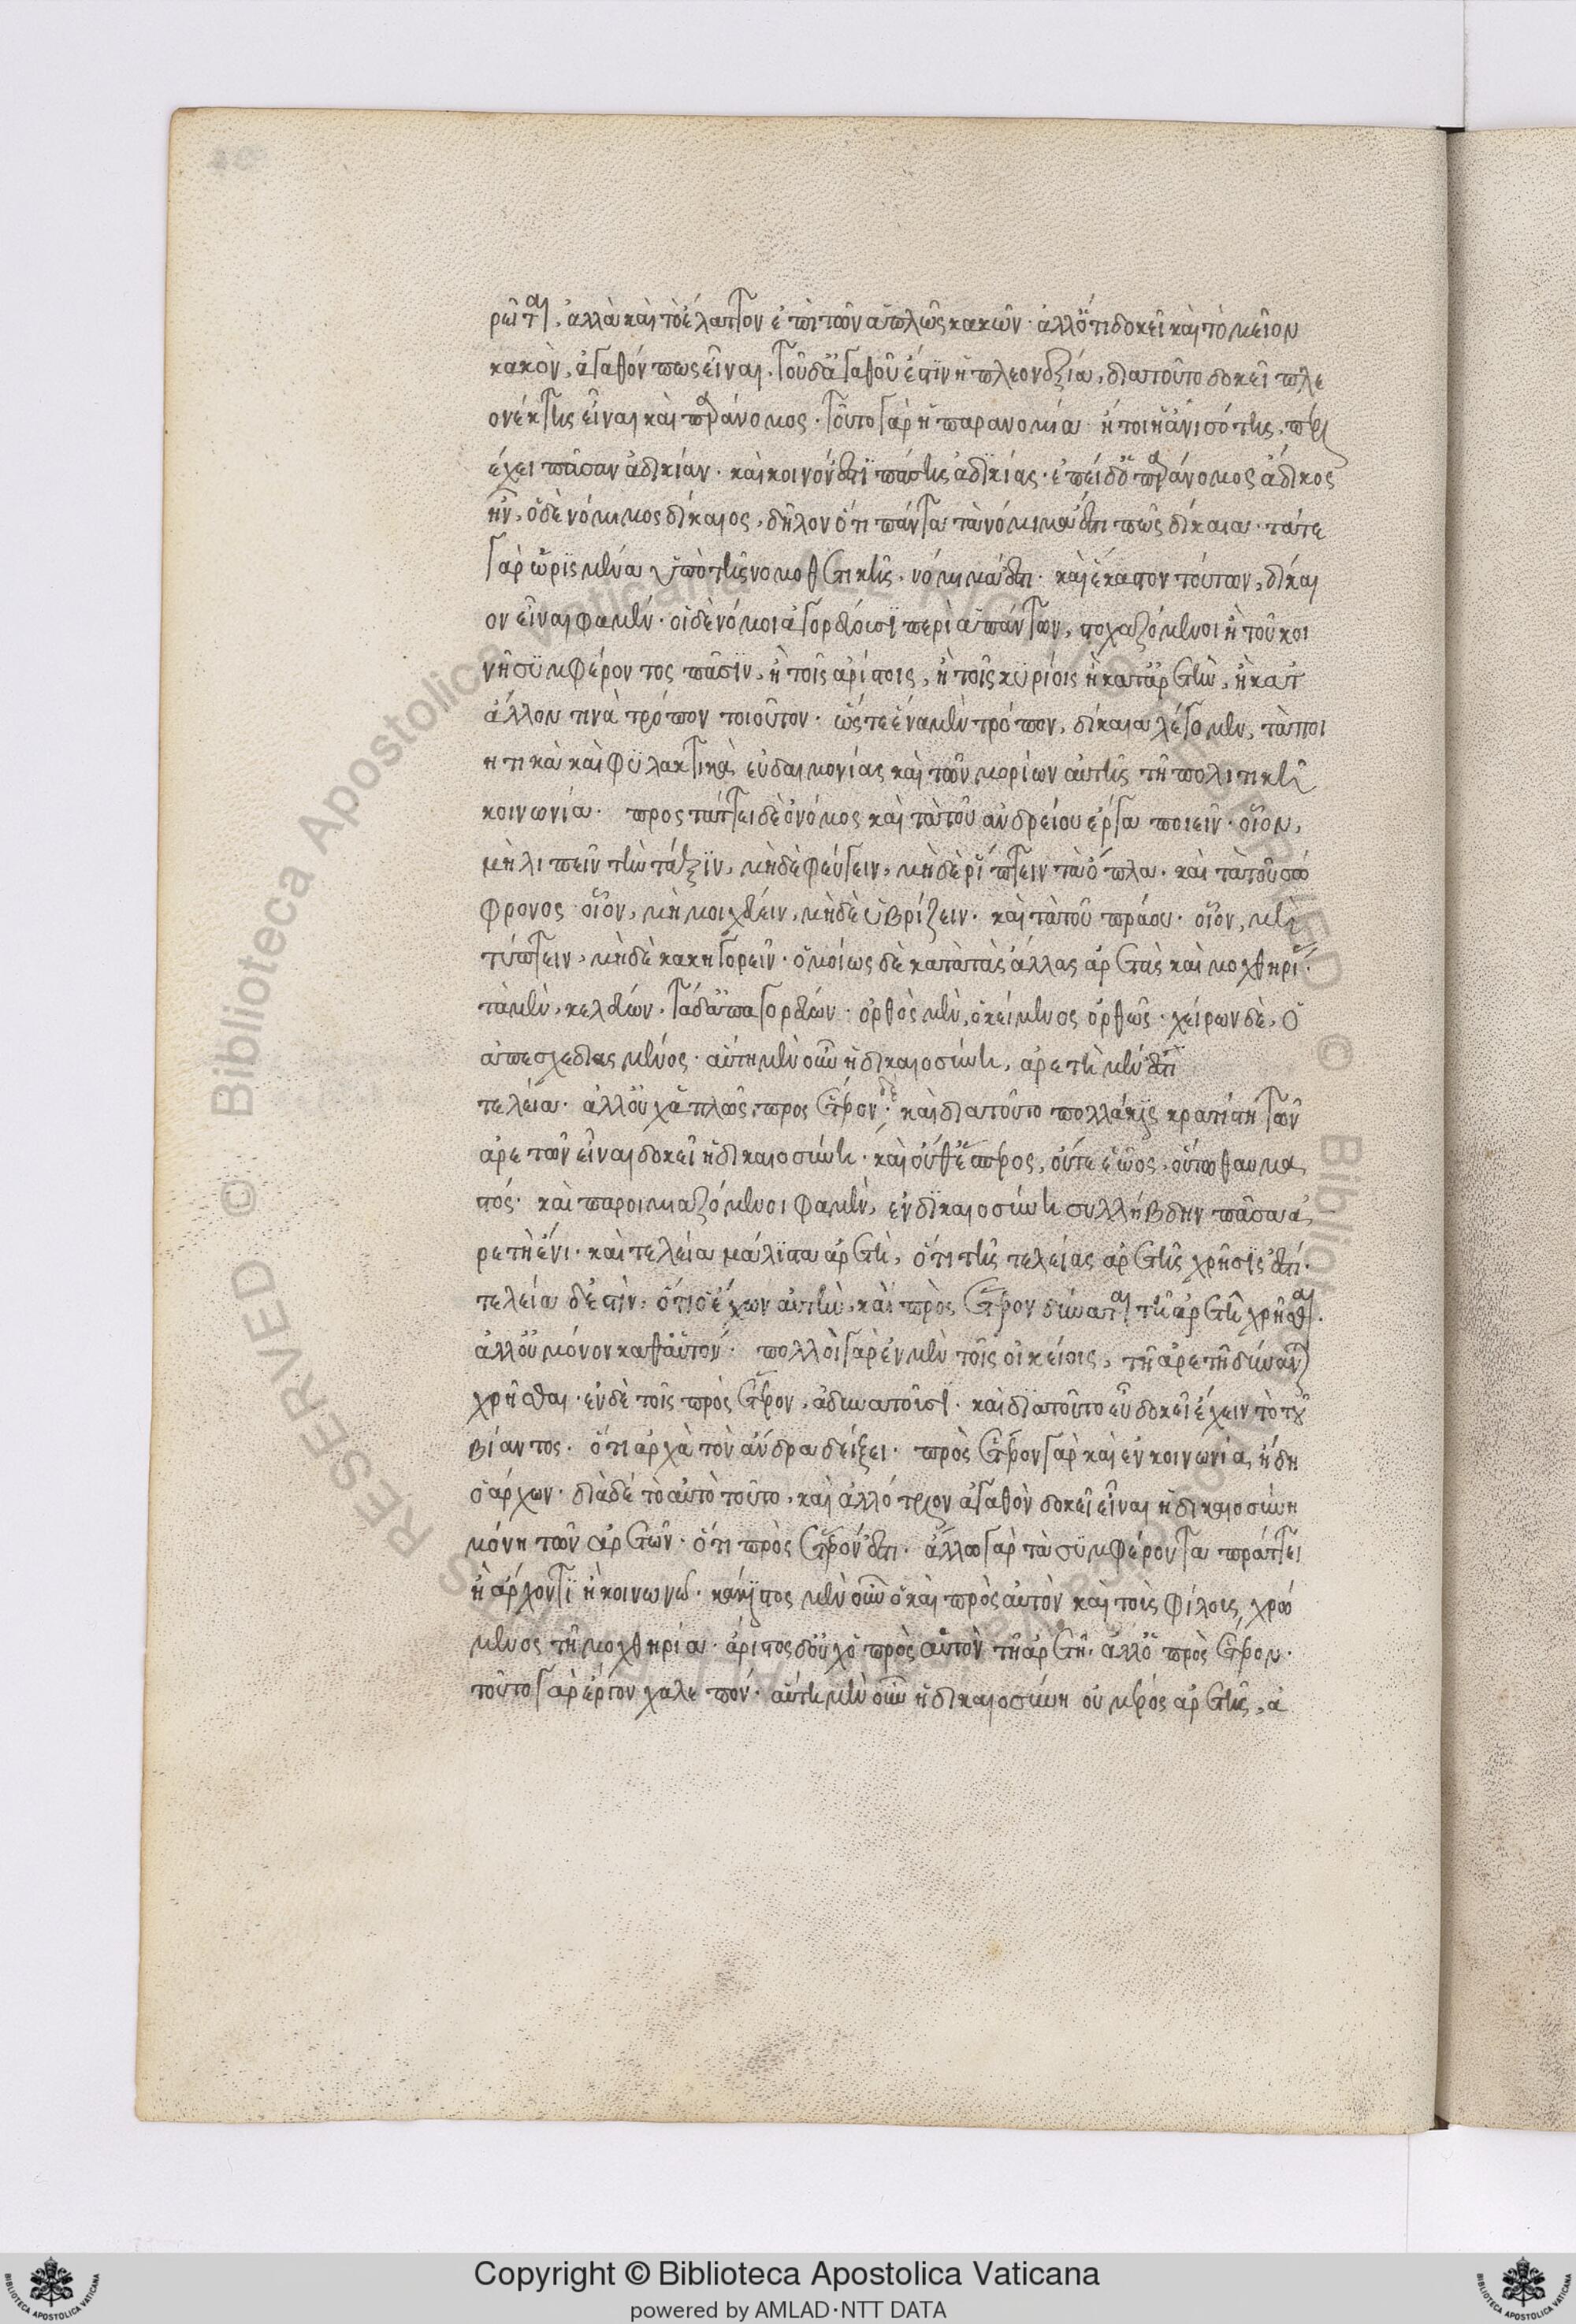 ρεῖται. ἀλλὰ καὶ τὸ ἔλαττον ἐπὶ τῶν ἁπλῶς κακῶν· ἀλλ' ὅτι δοκεῖ καὶ τὸ μεῖον
κακὸν, ἀγαθόν πως εἶναι. τοῦ δ' ἀγαθοῦ ἐστὶν ἡ πλεονεξία, διὰ τοῦτο δοκεῖ πλε
ονέκτης εἶναι καὶ παράνομος· τοῦτο γὰρ ἡ παρανομία ἤτοι ἡ ἀνισότης, περι
έχει πᾶσαν ἀδικίαν· καὶ κοινόν ἐστι πάσης ἀδικίας· ἐπεὶ δ' ὁ παράνομος ἄδικος
ἦν, ὁ δὲ νόμιμος δίκαιος, δῆλον ὅτι πάντα τὰ νόμιμά ἐστι πως δίκαια· τά τε
γὰρ ὡρισμένα ὑπὸ τῆς νομοθετικῆς, νόμιμά ἐστι· καὶ ἕκαστον τούτων, δίκαι
ον εἶναι φαμέν· οἱ δὲ νόμοι ἀγορεύουσι περὶ ἁπάντων, στοχαζόμενοι ἢ τοῦ κοι
νῇ συμφέροντος πᾶσιν, ἢ τοῖς ἀρίστοις, ἢ τοῖς κυρίοις ἢ κατ' ἀρετὴν, ἢ κατ'
ἄλλον τινὰ τρόπον τοιοῦτον· ὥστε ἕνα μὲν τρόπον, δίκαια λέγομεν, τὰ ποι
ητικὰ καὶ φυλακτικὰ εὐδαιμονίας καὶ τῶν μορίων αὐτῆς τῇ πολιτικῇ
κοινωνίᾳ· προστάττει δὲ ὁ νόμος καὶ τὰ τοῦ ἀνδρείου ἔργα ποιεῖν· οἷον,
μὴ λιπεῖν τὴν τάξιν, μὴ δὲ φεύγειν, μὴ δὲ ῥίπτειν τὰ ὅπλα· καὶ τὰ τοῦ σώ
φρονος οἷον, μὴ μοιχεύειν, μὴ δὲ ὑβρίζειν· καὶ τὰ τοῦ πράου· οἷον, μὴ
τύπτειν, μὴ δὲ κακηγορεῖν· ὁμοίως δὲ κατὰ τὰς ἄλλας ἀρετὰς καὶ μοχθηρίας·
τὰ μὲν, κελεύων, τὰ δ' ἀπαγορεύων· ὀρθὸς μὲν, ὁ κείμενος ὀρθῶς· χείρων δὲ, ὁ
ἀπεσχεδιασμένος· αὕτη μὲν οὖν ἡ δικαιοσύνη, ἀρετὴ μέν ἐστι
τελεία· ἀλλ' οὐχ ἁπλῶς, πρὸς ἕτερον δὲ· καὶ διὰ τοῦτο πολλάκις κρατίστη τῶν
ἀρετῶν εἶναι δοκεῖ ἡ δικαιοσύνη· καὶ οὔθ' ἕσπερος, οὔτε ἑῶος, οὕτω θαυμα
στός· καὶ παροιμιαζόμενοι φαμὲν, ἐν δικαιοσύνῃ συλλήβδην πᾶσα ἀ
ρετὴ ἔνι· καὶ τελεία μάλιστα ἀρετὴ, ὅτι τῆς τελείας ἀρετῆς χρῆσίς ἐστι·
τελεία δέ ἐστιν, ὅτι ὁ ἔχων αὐτὴν, καὶ πρὸς ἕτερον δύναται τῇ ἀρετῇ χρῆσθαι.
ἀλλ' οὐ μόνον καθ' αὑτόν· πολλοὶ γὰρ ἐν μὲν τοῖς οἰκείοις, τῇ ἀρετῇ δύνανται
χρῆσθαι· ἐν δὲ τοῖς πρὸς ἕτερον, ἀδυνατοῦσι· καὶ διὰ τοῦτο εὖ δοκεῖ ἔχειν τὸ τοῦ
βίαντος· ὅτι ἀρχὰ τὸν ἄνδρα δείξει· πρὸς ἕτερον γὰρ καὶ ἐν κοινωνίᾳ ἤδη
ὁ ἄρχων· διὰ δὲ τὸ αὐτὸ τοῦτο, καὶ ἀλλότριον ἀγαθὸν δοκεῖ εἶναι ἡ δικαιοσύνη
μόνη τῶν ἀρετῶν· ὅτι πρὸς ἕτερόν ἐστι· ἄλλῳ γὰρ τὰ συμφέροντα πράττει
ἢ ἄρχοντι ἢ κοινωνῷ· κάκιστος μὲν οὖν ὁ καὶ πρὸς αὑτὸν καὶ τοῖς φίλοις χρώ
μενος τῇ μοχθηρίᾳ· ἄριστος δ' οὐχ ὁ πρὸς αὑτὸν τῇ ἀρετῇ, ἀλλ' ὁ πρὸς ἕτερον·
τοῦτο γὰρ ἔργον χαλεπόν· αὕτη μὲν οὖν ἡ δικαιοσύνη οὐ μέρος ἀρετῆς, ἀ
Copyright © Biblioteca Apostolica Vaticana
powered by AMLAD·NTT DATA